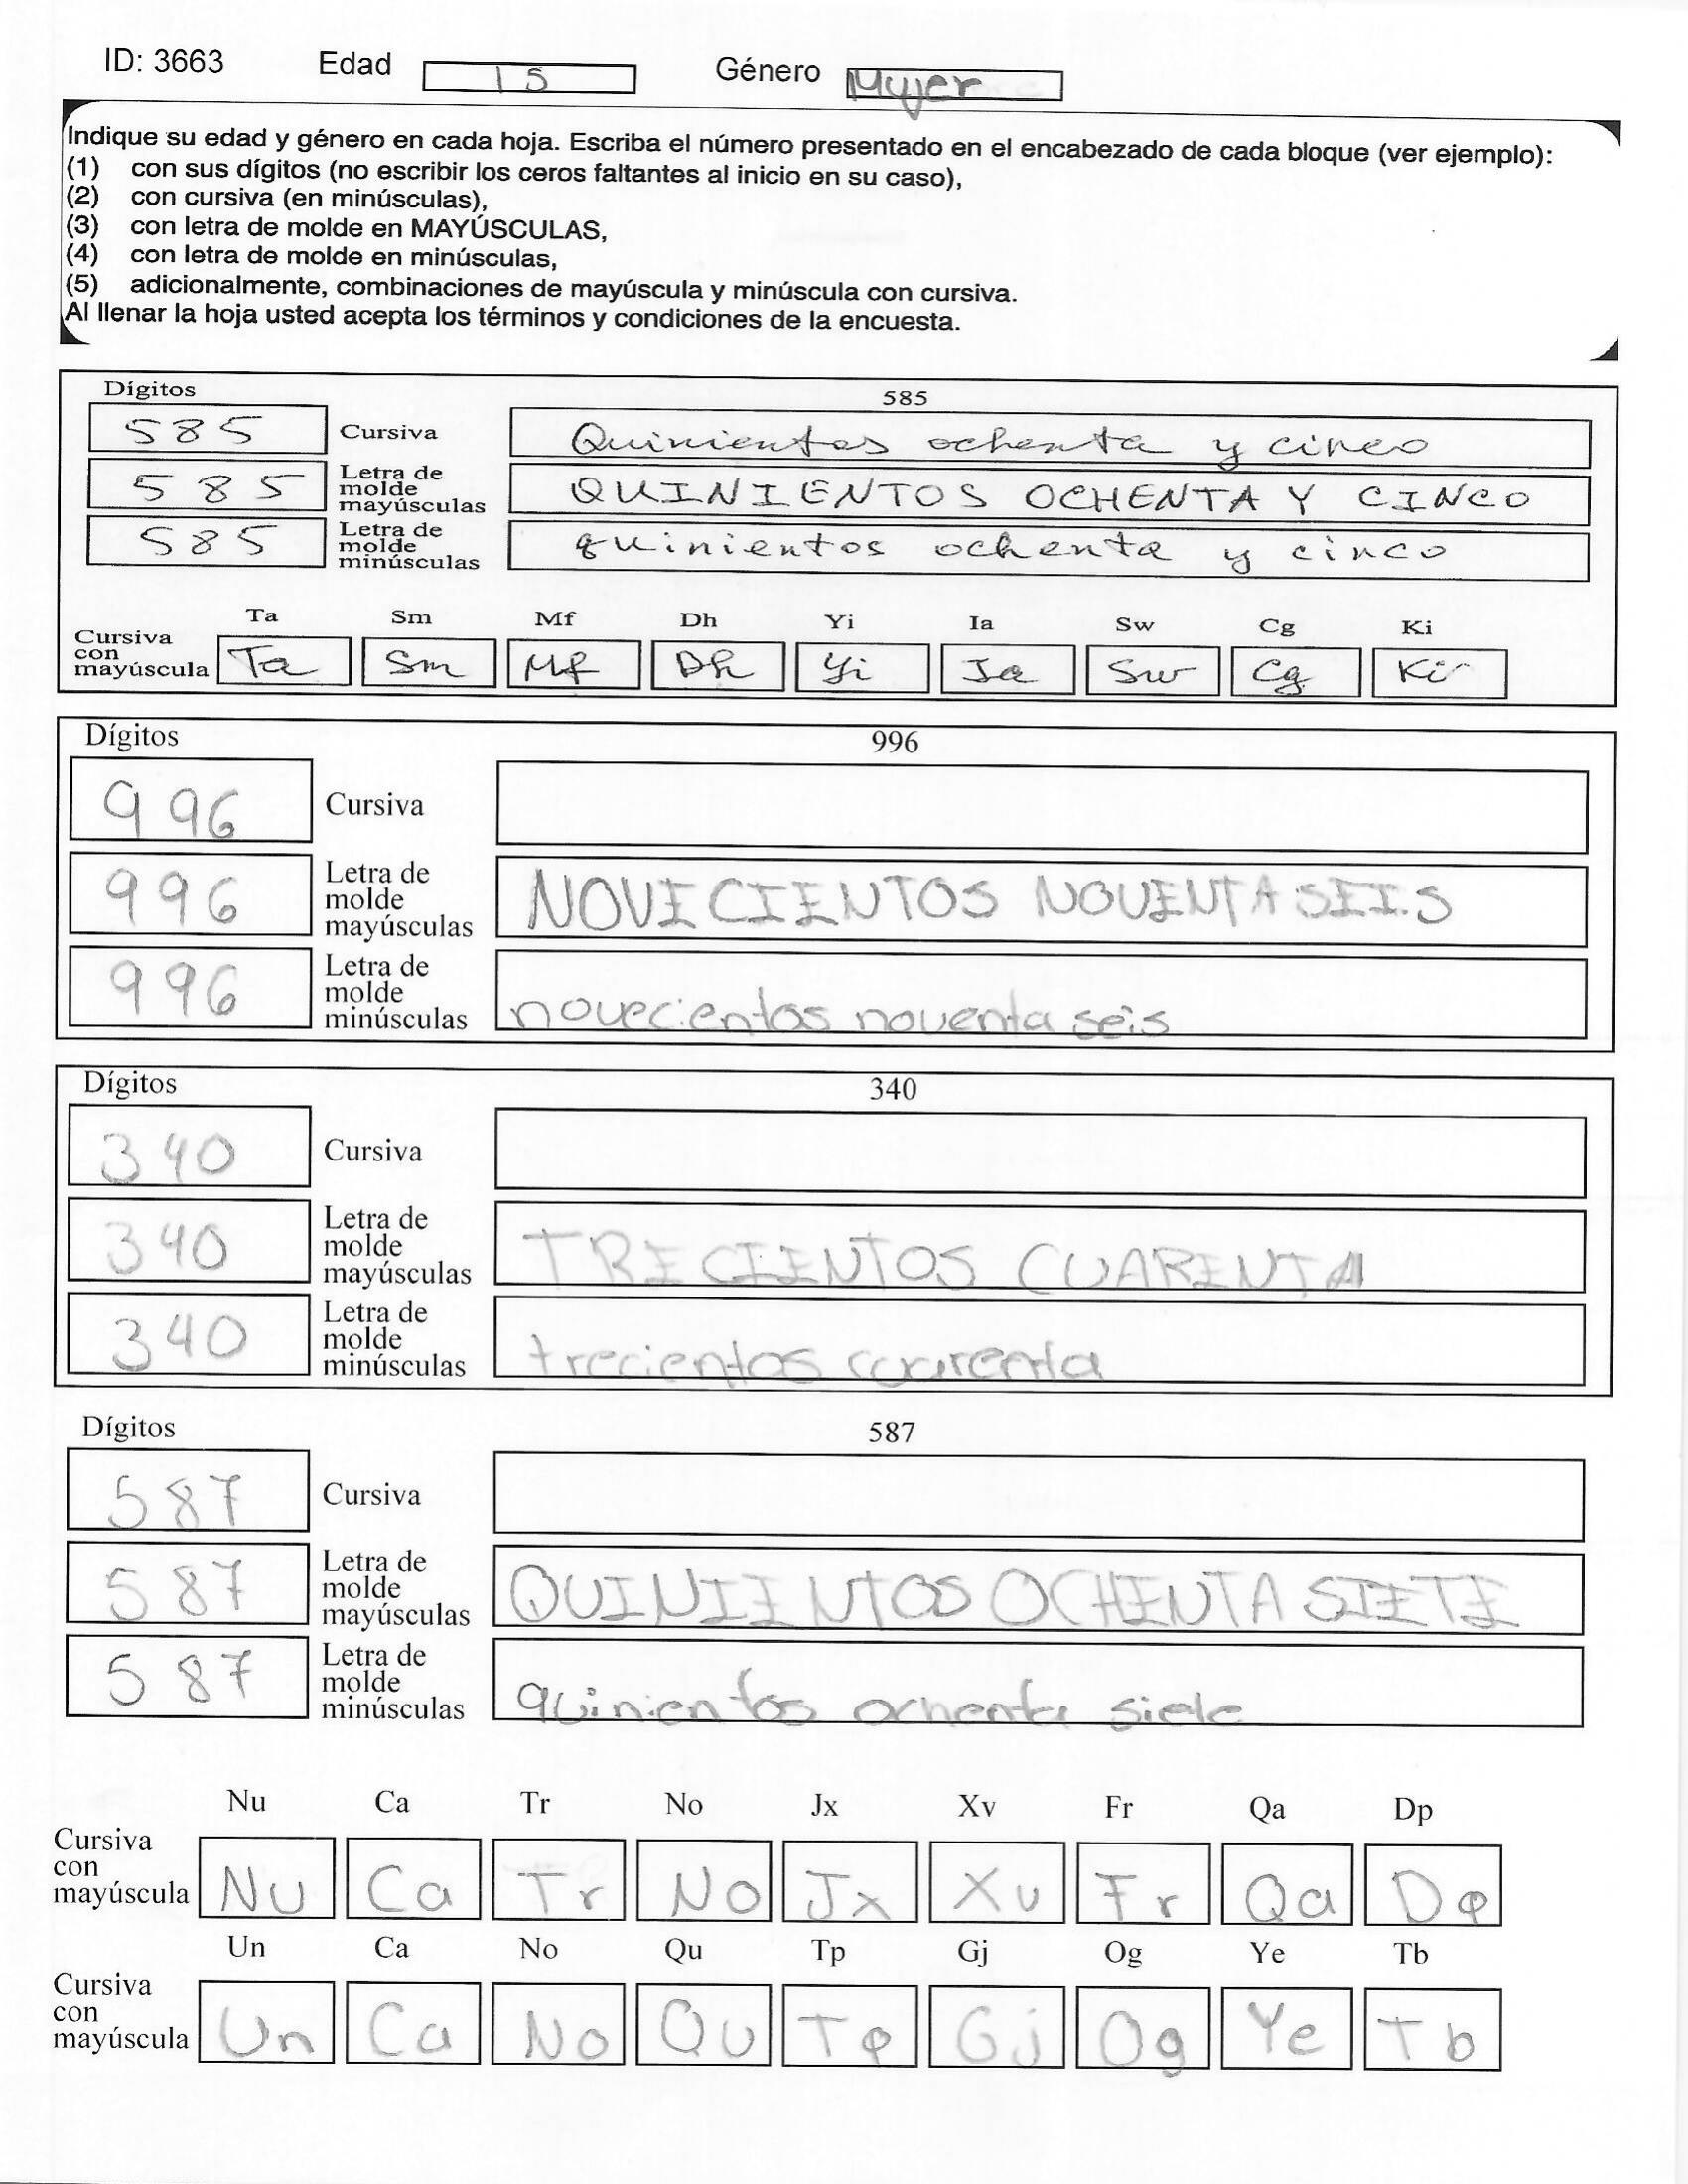 ID: 3663 Edad 15 Género Mujer
Indique su edad y género en cada hoja. Escriba el número presentado en el encabezado de cada bloque (ver ejemplo):
(1) con sus dígitos (no escribir los ceros faltantes al inicio en su caso),
(2) con cursiva (en minúsculas),
(3) con letra de molde en MAYÚSCULAS,
(4) con letra de molde en minúsculas,
(5) adicionalmente, combinaciones de mayúscula y minúscula con cursiva.
Al llenar la hoja usted acepta los términos y condiciones de la encuesta.
Dígitos 585
585 Cursiva Quinientos ochenta y cinco
585 Letra de molde mayúsculas QUINIENTOS OCHENTA Y CINCO
585 Letra de molde minúsculas quinientos ochenta y cinco
Ta Sm Mf Dh Yi Ia Sw Cg Ki
Cursiva con mayúscula Ta Sm Mf Dh Yi Ia Sw Cg Ki
Dígitos 996
996 Cursiva
996 Letra de molde mayúsculas NOVECIENTOS NOVENTA SEIS
996 Letra de molde minúsculas novecientos noventa seis
Dígitos 340
340 Cursiva
340 Letra de molde mayúsculas TRECIENTOS CUARENTA
340 Letra de molde minúsculas trecientos cuarenta
Dígitos 587
587 Cursiva
587 Letra de molde mayúsculas QUINIENTOS OCHENTA SIETE
587 Letra de molde minúsculas quinientos ochenta siete
Nu Ca Tr No Jx Xv Fr Qa Dp
Cursiva con mayúscula Nu Ca Tr No Jx Xv Fr Qa Dp
Un Ca No Qu Tp Gj Og Ye Tb
Cursiva con mayúscula Un Ca No Qu Tp Gj Og Ye Tb